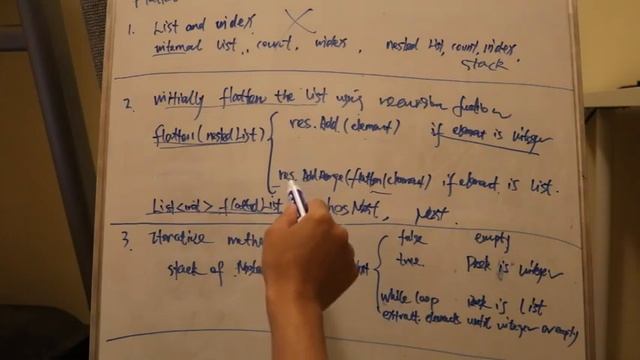 1. List and index
internal list, count, index, nested List, count, index.
stack
2. initially flatten the list using recursion function
flatten(nestedList) res.Add(element) if element is integer
res.AddRange(flatten(element) if element is list.
List<int> flattedList hasNext, Next.
3. Iterative
false empty
stack of true Peek is integer
while loop peek is list
extract elements until integer or empty